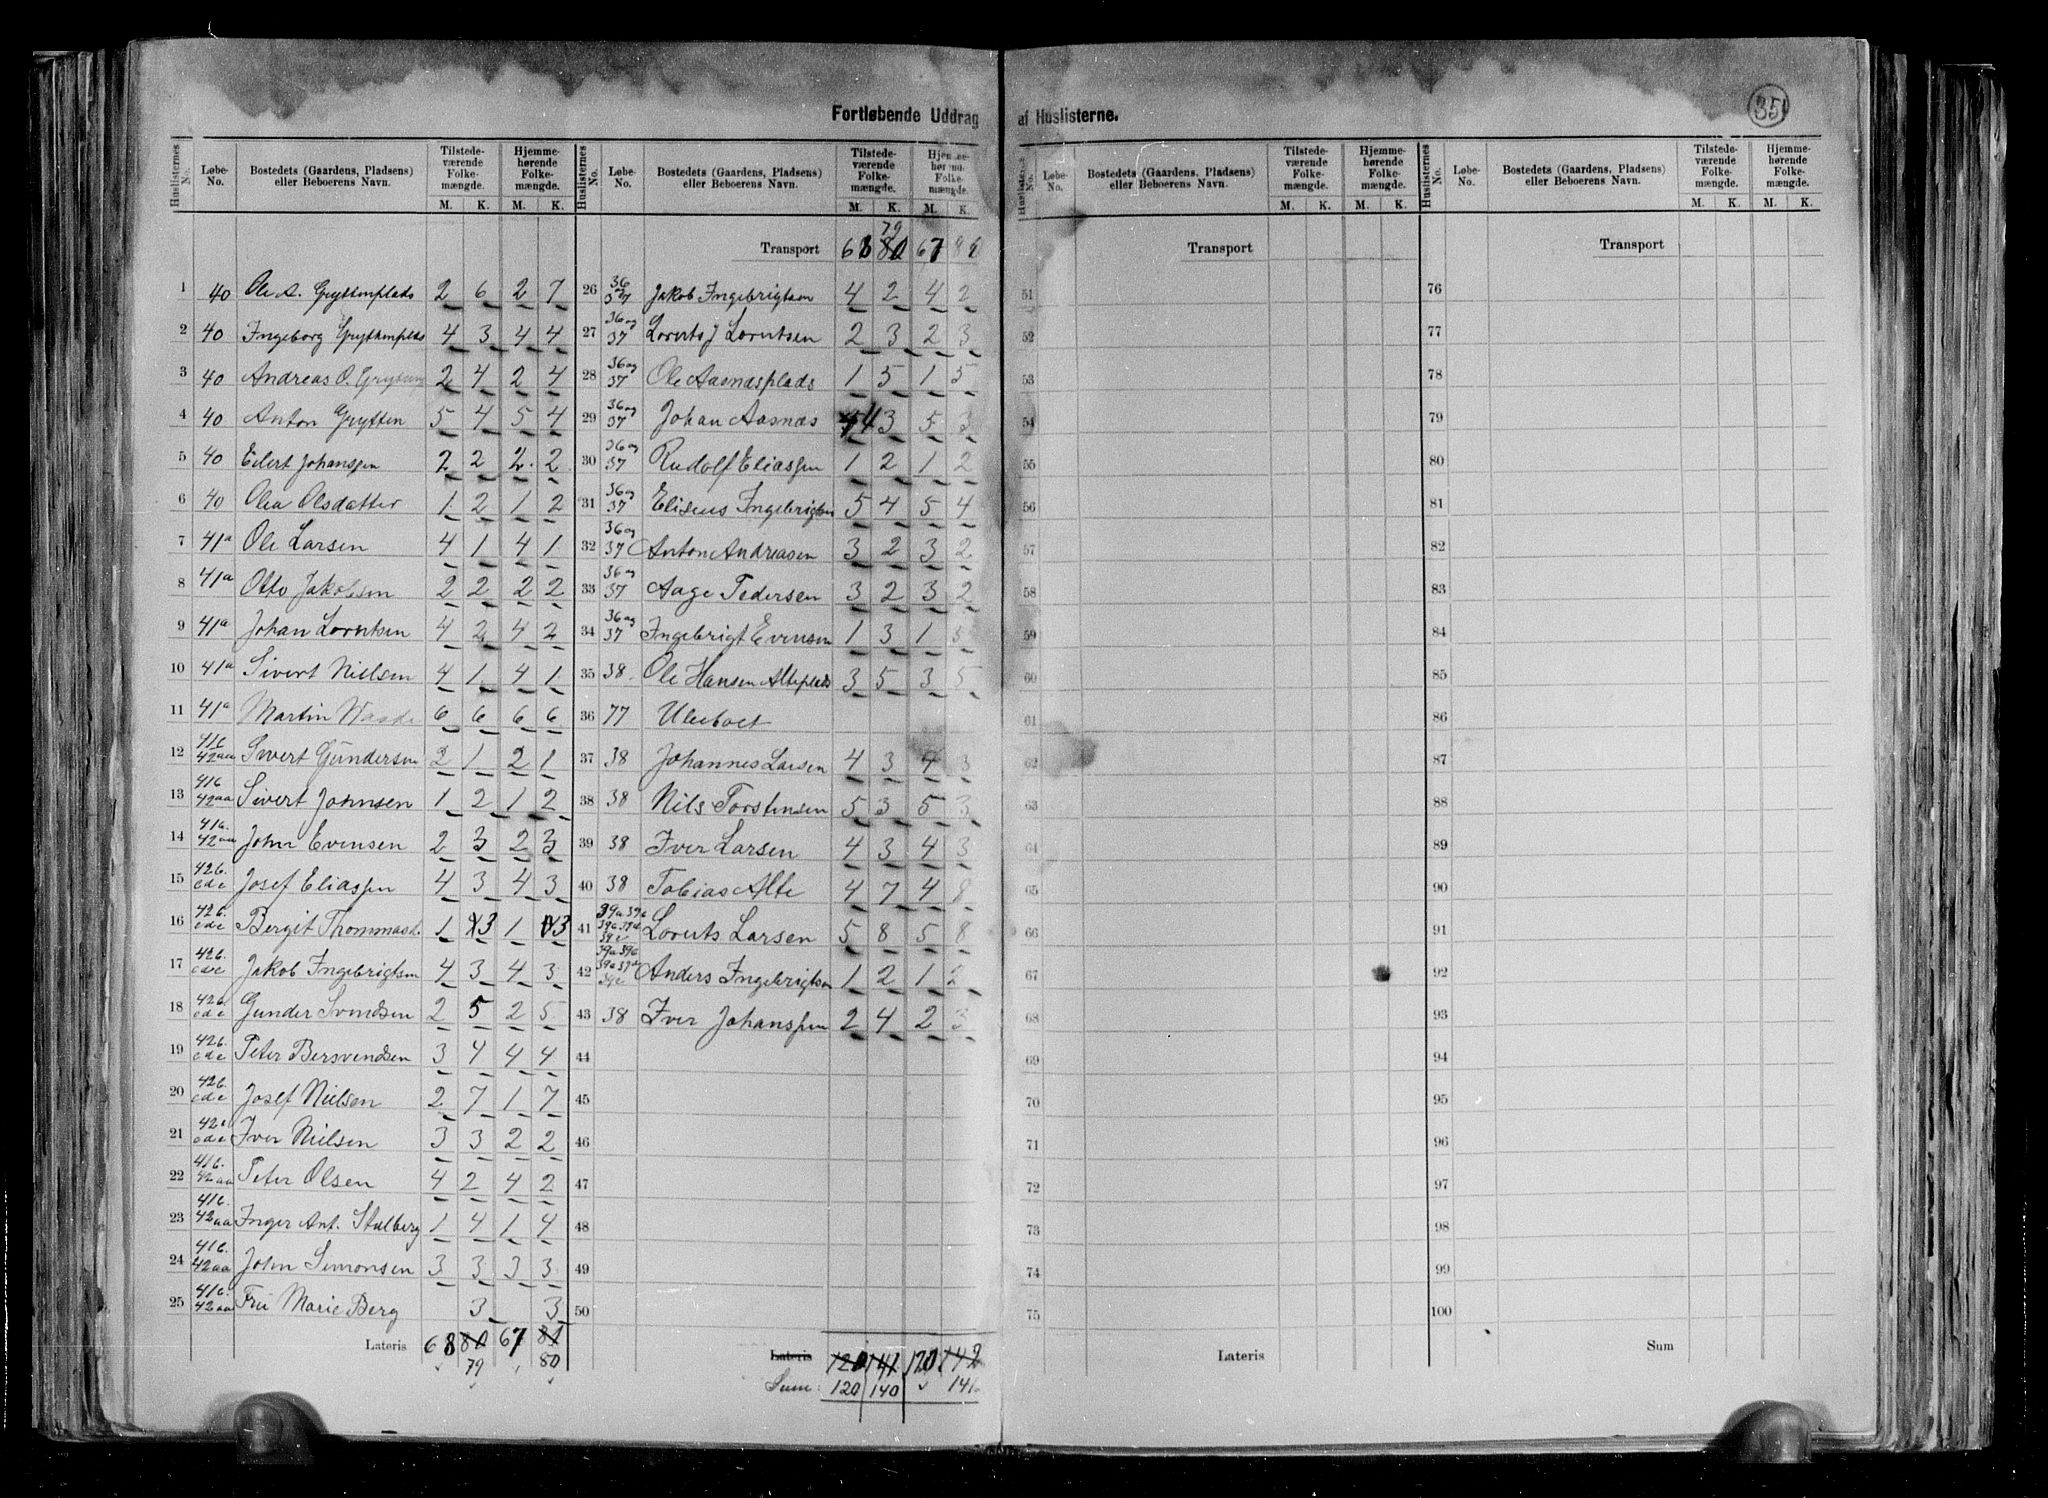 Fortløbende Uddrag af Huslisterne.
35
Huslisternes No. Løbe-No. Bostedets (Gaardens, Pladsens) eller Beboerens Navn. Tilstedeværende Folkemængde. M. K. Hjemmehørende Folkemængde. M. K.
1 40 Ole A. Gryttenplads 2 6 2 7
2 40 Ingeborg Gryttenplads 4 3 4 4
3 40 Andreas O. 2 4 2 4
4 40 Anton Grytten 5 4 5 4
5 40 Eilert Johanssen 2 2 2 2
6 40 Olea Olsdatter 1 2 1 2
7 41a Ole Larsen 4 1 4 1
8 41a Otto Jakobsen 2 2 2 2
9 41a Johan Lorntsen 4 2 4 2
10 41a Sivert Nielsen 4 1 4 1
11 41a Martin 6 6 6 6
12 41b 42aa Sivert Gundersen 2 1 2 1
13 41b 42aa Sivert Johnsen 1 2 1 2
14 41b. 42aa John Evensen 2 3 2 3
15 42b. cde Josef Eliassen 4 3 4 3
16 42b. cde Bergit Thommasd. 1 3 1 3
17 42b. cde Jakob Ingebrigtsen 4 3 4 3
18 42b. cde Gunder Svendsen 2 5 2 5
19 42b. cde Peter Bersvendsen 3 4 4 4
20 42b. cde Josef Nielsen 2 7 1 7
21 42b cde Iver Nielsen 3 3 2 2
22 41b. 42aa Peter Olsen 4 2 4 2
23 41b. 42aa Inger Ant. Stalberg 1 4 1 4
24 41b. 42aa John Simonsen 3 3 3 3
25 41b. 42aa Fru Marie Berg 3 3
Lateris 68 80 67 81
79 80
Huslisternes No. Løbe-No. Bostedets (Gaardens, Pladsens) eller Beboerens Navn. Tilstedeværende Folkemængde. M. K. Hjemmehørende Folkemængde. M. K.
79
Transport 68 80 67
26 36 og 37 Jakob Ingebrigtsen 4 2 4 2
27 36 og 37 Lornts J Lorntsen 2 3 2 3
28 36 og 37 Ole Aasnæsplads 1 5 1 5
29 36 og 37 Johan Aasnæs 4 3 5 3
30 36 og 37 Rudolf Eliassen 1 2 1 2
31 36 og 37 Eliseus Ingebrigtsen 5 4 5 4
32 36 og 37 Anton Andreasen 3 2 3 2
33 36 og 37 Aage Pedersen 3 2 3 2
34 36 og 37 Ingebrigt Evensen 1 3 1 3
35 38. Ole Hansen Alteplads 3 5 3 5
36 77 Ubeboet
37 38 Johannes Larsen 4 3 4 3
38 38 Nils Torstensen 5 3 5 3
39 38 Iver Larsen 4 3 4 3
40 38 Tobias Alte 4 7 4 8
41 39a 39b 39c 39d 39e Lornts Larsen 5 8 5 8
42 39a 39b 39c 39d 39e Anders Ingebrigtsen 1 2 1 2
43 38 Iver Johanssen 2 4 2 3
44
45
46
47
48
49
50
Lateris 120 141 120 142
Sum: 120 140 141
Huslisternes No. Løbe-No. Bostedets (Gaardens, Pladsens) eller Beboerens Navn. Tilstedeværende Folkemængde. M. K. Hjemmehørende Folkemængde. M. K.
Transport
51
52
53
54
55
56
57
58
59
60
61
62
63
64
65
66
67
68
69
70
71
72
73
74
75
Lateris
Huslisternes No. Løbe-No. Bostedets (Gaardens, Pladsens) eller Beboerens Navn. Tilstedeværende Folkemængde. M. K. Hjemmehørende Folkemængde. M. K.
Transport
76
77
78
79
80
81
82
83
84
85
86
87
88
89
90
91
92
93
94
95
96
97
98
99
100
Sum